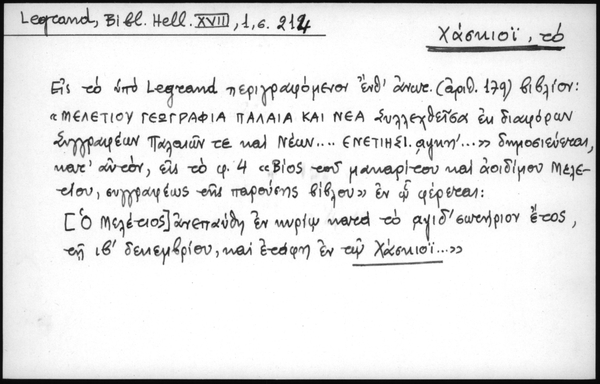 Legrand, Bibl. Hell. XVII, 1, σ. 214
Χάσκιοϊ, τὸ
Εἰς τὸ ὑπὸ Legrand περιγραφόμενον ἔνθ' ἀνωτ. (ἀριθ. 179) βιβλίον:
«ΜΕΛΕΤΙΟΥ ΓΕΩΓΡΑΦΙΑ ΠΑΛΑΙΑ ΚΑΙ ΝΕΑ συλλεχθεῖσα ἐκ διαφόρων
συγγραφέων Παλαιῶν τε καὶ Νέων.... ΕΝΕΤΙΗΣΙ. αψκη'...» δημοσιεύεται,
κατ' αὐτόν, εἰς τὸ φ. 4 «Βίος τοῦ μακαρίτου καὶ ἀοιδίμου Μελε-
τίου, συγγραφέως τῆς παρούσης βίβλου» ἐν ᾧ φέρεται:
[Ὁ Μελέτιος] ἀνεπαύθη ἐν κυρίῳ κατὰ τὸ αψιδ' σωτήριον ἔτος,
τῇ ιβ' δεκεμβρίου, καὶ ἐτάφη ἐν τῷ Χάσκιοϊ...»